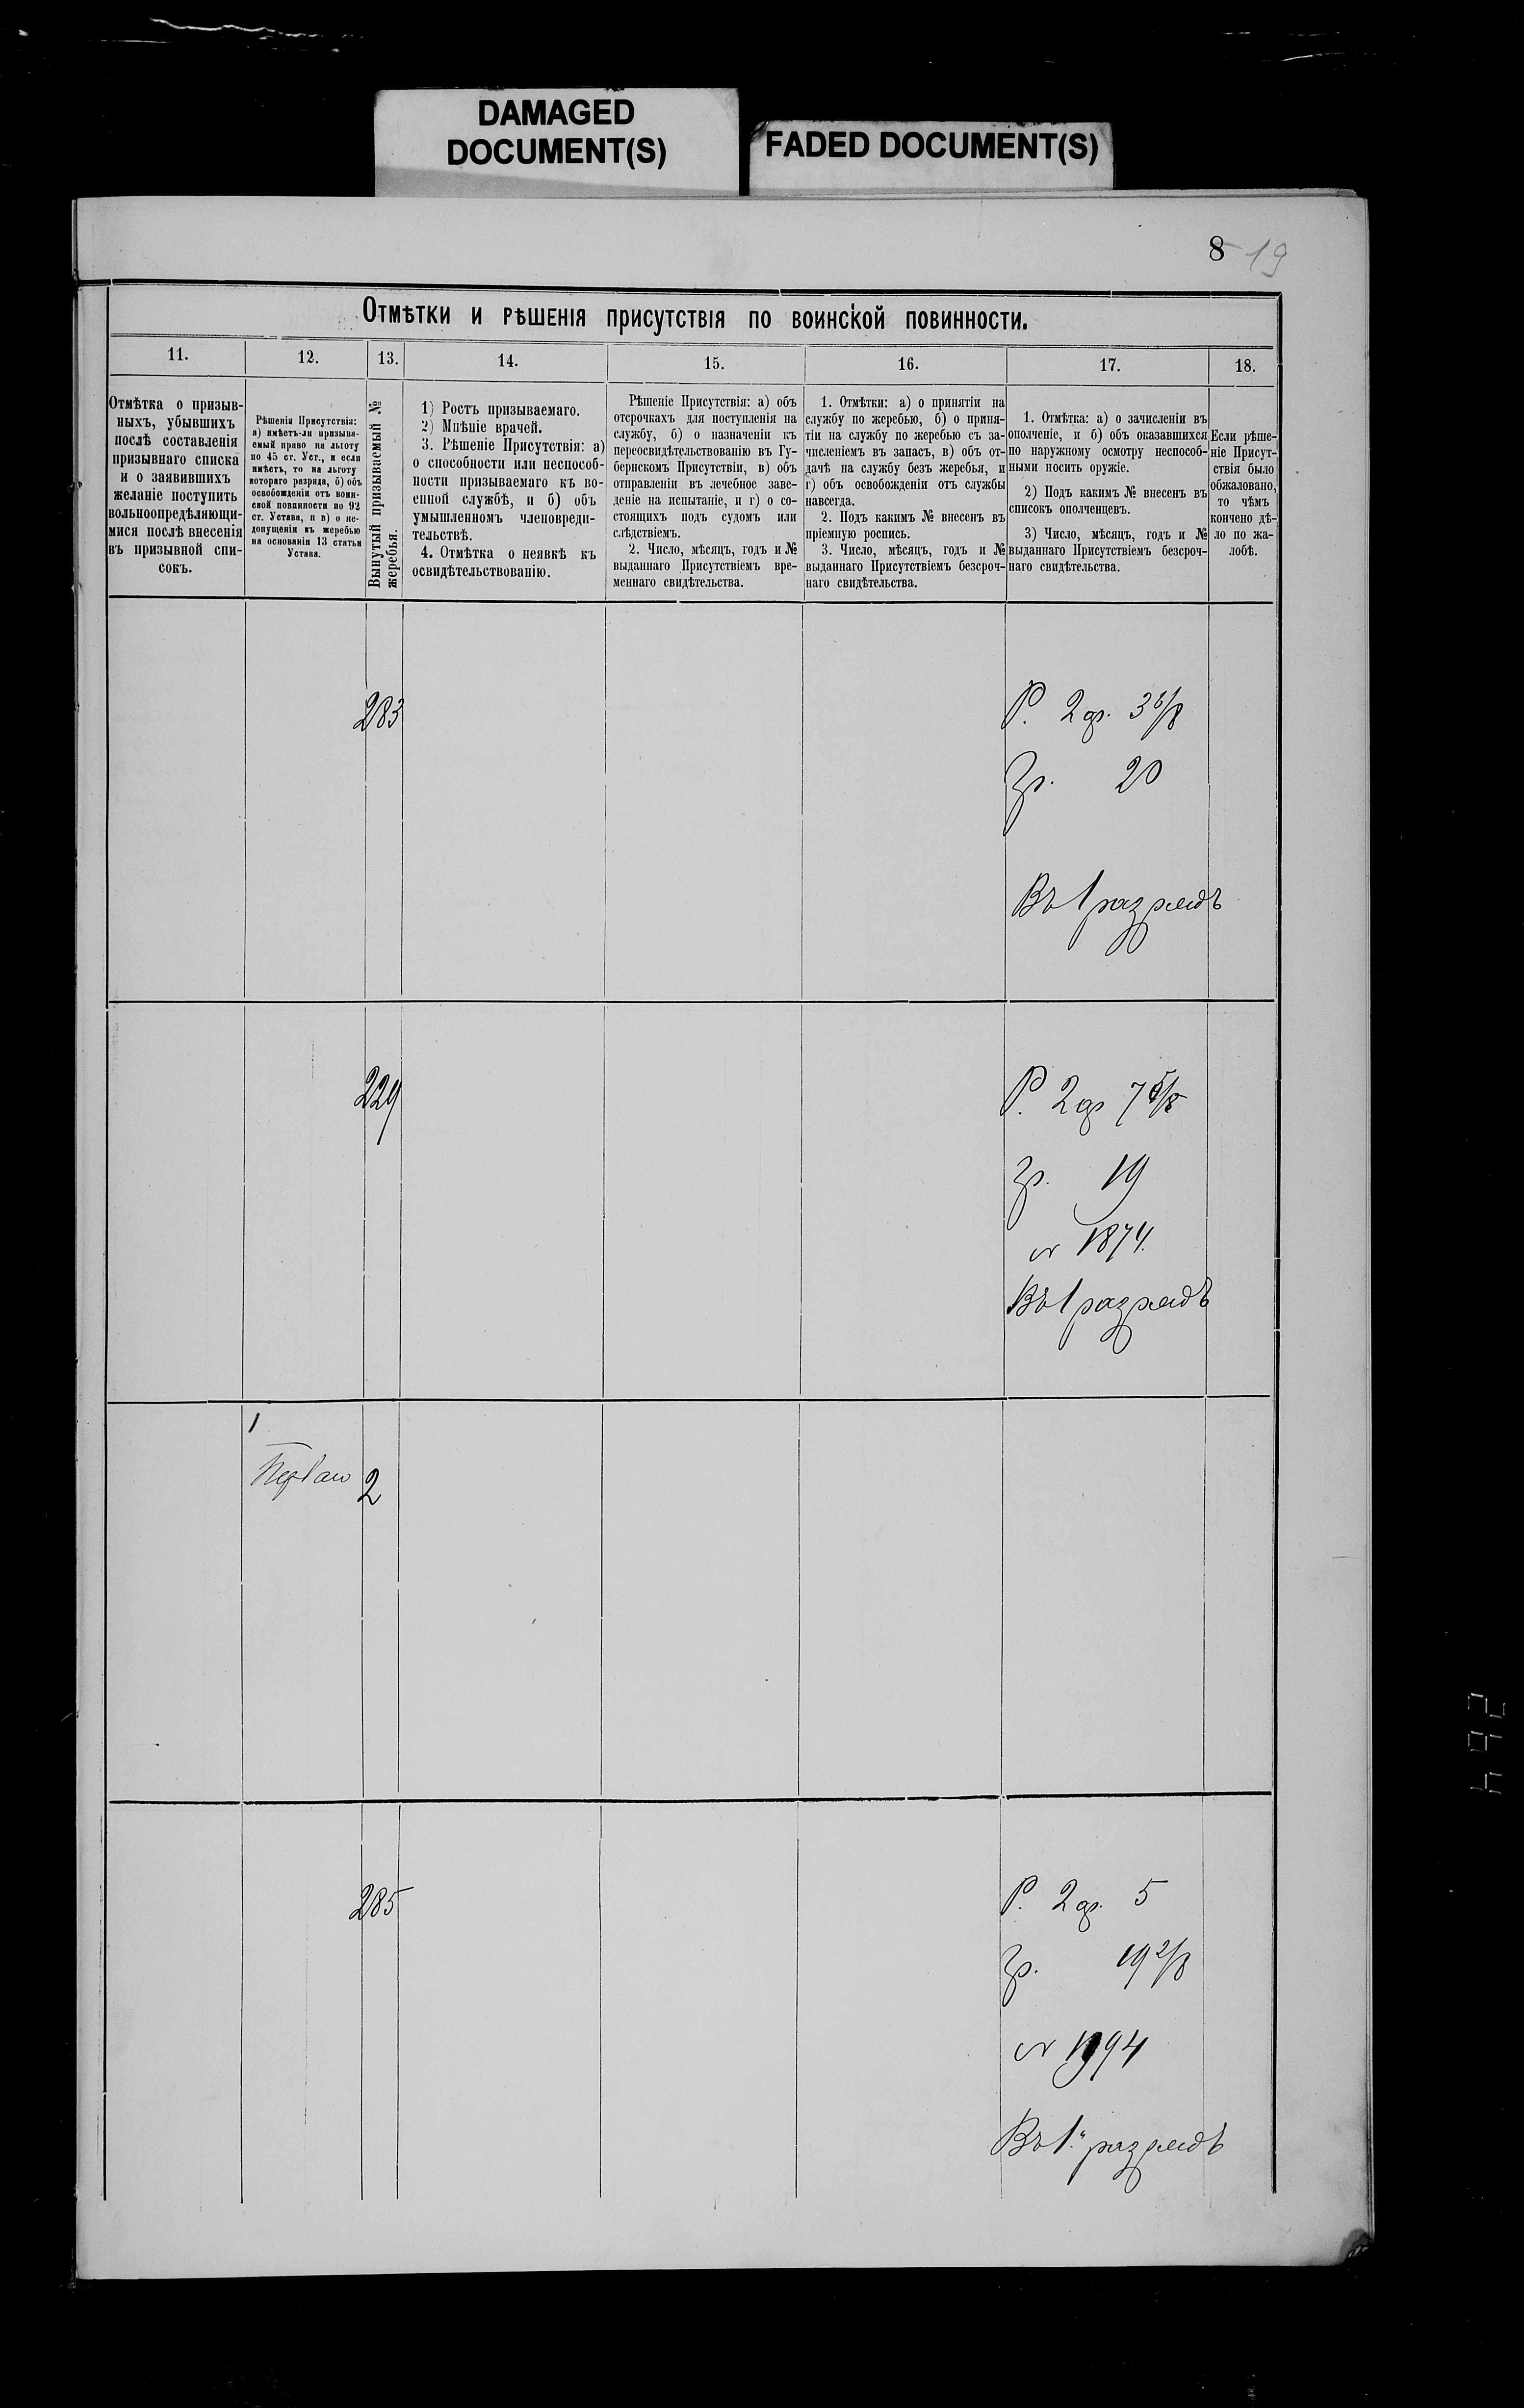 DAMAGED
DOCUMENT(S)
FADED DOCUMENT(S)
8 19
Отмѣтки и рѣшенія присутствія по воинской повинности.
11.
12.
13.
14.
15.
16.
17.
18.
Отмѣтка о призыв-
ныхъ, убывшихъ
послѣ составленія
призывнаго списка
и о заявившихъ
желаніе поступить
вольноопредѣляющи-
мися послѣ внесенія
въ призывной спи-
сокъ.
Рѣшенія Присутствія:
а) имѣетъ-ли призыва-
емый право на льготу
по 45 ст. Уст., и если
имѣетъ, то на льготу
котораго разряда, б) объ
освобожденіи отъ воин-
ской повинности по 92
ст. Устава, и в) о не-
допущеніи къ жеребью
на основаніи 13 статьи
Устава.
Вынутый призываемый №
жеребья.
1) Ростъ призываемаго.
2) Мнѣніе врачей.
3. Рѣшеніе Присутствія: а)
о способности или неспособ-
ности призываемаго къ во-
енной службѣ, и б) объ
умышленномъ членовреди-
тельствѣ.
4. Отмѣтка о неявкѣ къ
освидѣтельствованію.
Рѣшеніе Присутствія: а) объ
отсрочкахъ для поступленія на
службу, б) о назначеніи къ
переосвидѣтельствованію въ Гу-
бернскомъ Присутствіи, в) объ
отправленіи въ лечебное заве-
деніе на испытаніе, и г) о со-
стоящихъ подъ судомъ или
слѣдствіемъ.
2. Число, мѣсяцъ, годъ и №
выданнаго Присутствіемъ вре-
меннаго свидѣтельства.
1. Отмѣтки: а) о принятіи на
службу по жеребью, б) о приня-
тіи на службу по жеребью съ за-
численіемъ въ запасъ, в) объ от-
дачѣ на службу безъ жеребья, и
г) объ освобожденіи отъ службы
навсегда.
2. Подъ какимъ № внесенъ въ
пріемную роспись.
3. Число, мѣсяцъ, годъ и №
выданнаго Присутствіемъ безсроч-
наго свидѣтельства.
1. Отмѣтка: а) о зачисленіи въ
ополченіе, и б) объ оказавшихся
по наружному осмотру неспособ-
ными носить оружіе.
2) Подъ какимъ № внесенъ въ
списокъ ополченцевъ.
3) Число, мѣсяцъ, годъ и №
выданнаго Присутствіемъ безсроч-
наго свидѣтельства.
Если рѣше-
ніе Присут-
ствія было
обжаловано,
то чѣмъ
кончено дѣ-
ло по жа-
лобѣ.
283
Р. 2 ар. 3 6/8
Гр. 20
Въ 1 разрядъ
229
Р. 2 ар 7 5/8
Гр. 19
1874.
Въ 1 разрядъ
1
2
285
Р. 2 ар. 5
Гр. 19 2/8
Въ 1й разрядъ
264